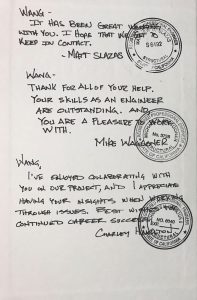 WANG -
IT HAS BEEN GREAT WORKING
WITH YOU. I HOPE THAT WE GET TO
KEEP IN CONTACT.
- MATT SLAZAS
WANG -
THANK FOR ALL OF YOUR HELP.
YOUR SKILLS AS AN ENGINEER
ARE OUTSTANDING. AND
YOU ARE A PLEASURE TO WORK
WITH.
MIKE
WANG,
I'VE ENJOYED COLLABORATING WITH
YOU ON OUR PROJECT, AND I APPRECIATE
HAVING YOUR INSIGHTS WHEN WORKING
THROUGH ISSUES. BEST WITH
CONTINUED CAREER SUCCESS.
CHARLEY